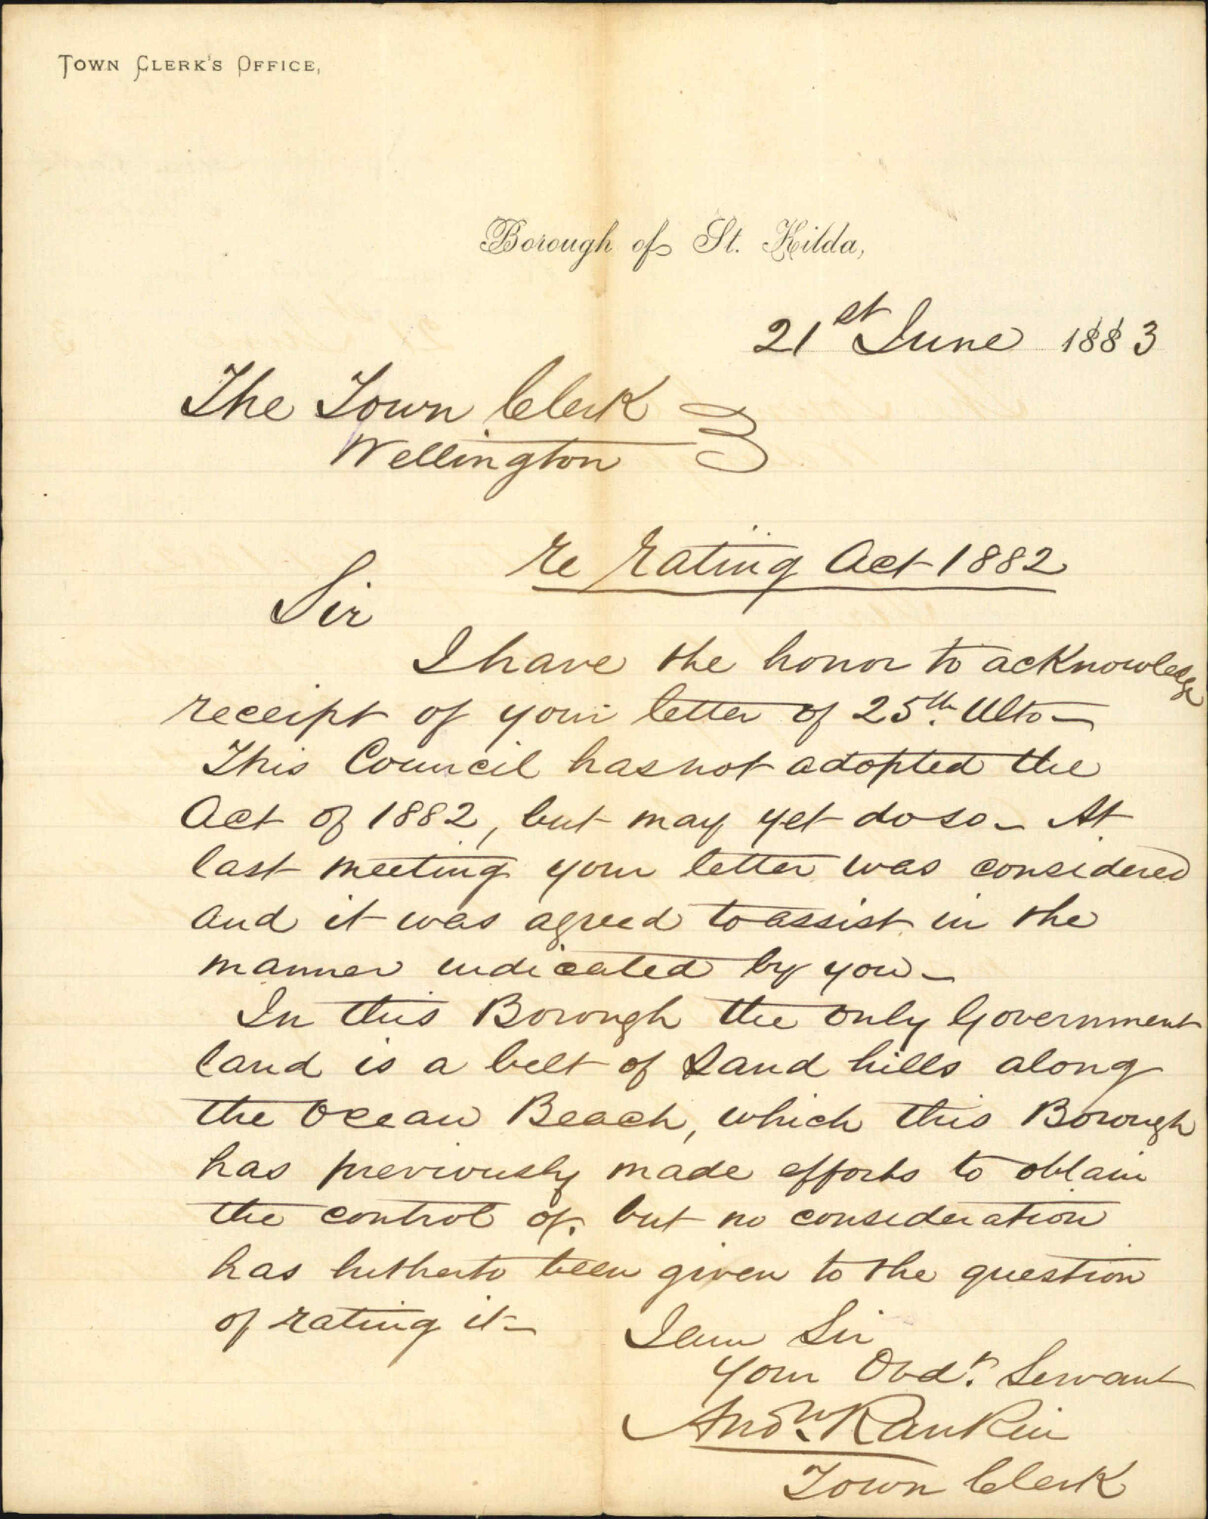 TOWN CLERK'S OFFICE,
Borough of St. Kilda,
21st June 1883
The Town Clerk
Wellington
re Rating Act 1882
Sir
I have the honor to acknowledge
receipt of your letter of 25th. Ulto—
This Council has not adopted the
Act of 1882, but may yet do so— At
last meeting your letter was considered
and it was agreed to assist in the
manner indicated by you—
In this Borough the only Government
land is a belt of Sand hills along
the Ocean Beach, which this Borough
has previously made efforts to obtain
the control of, but no consideration
has hitherto been given to the question
of rating it—
I am Sir
Your Obdt. Servant
Andw. Rankin
Town Clerk